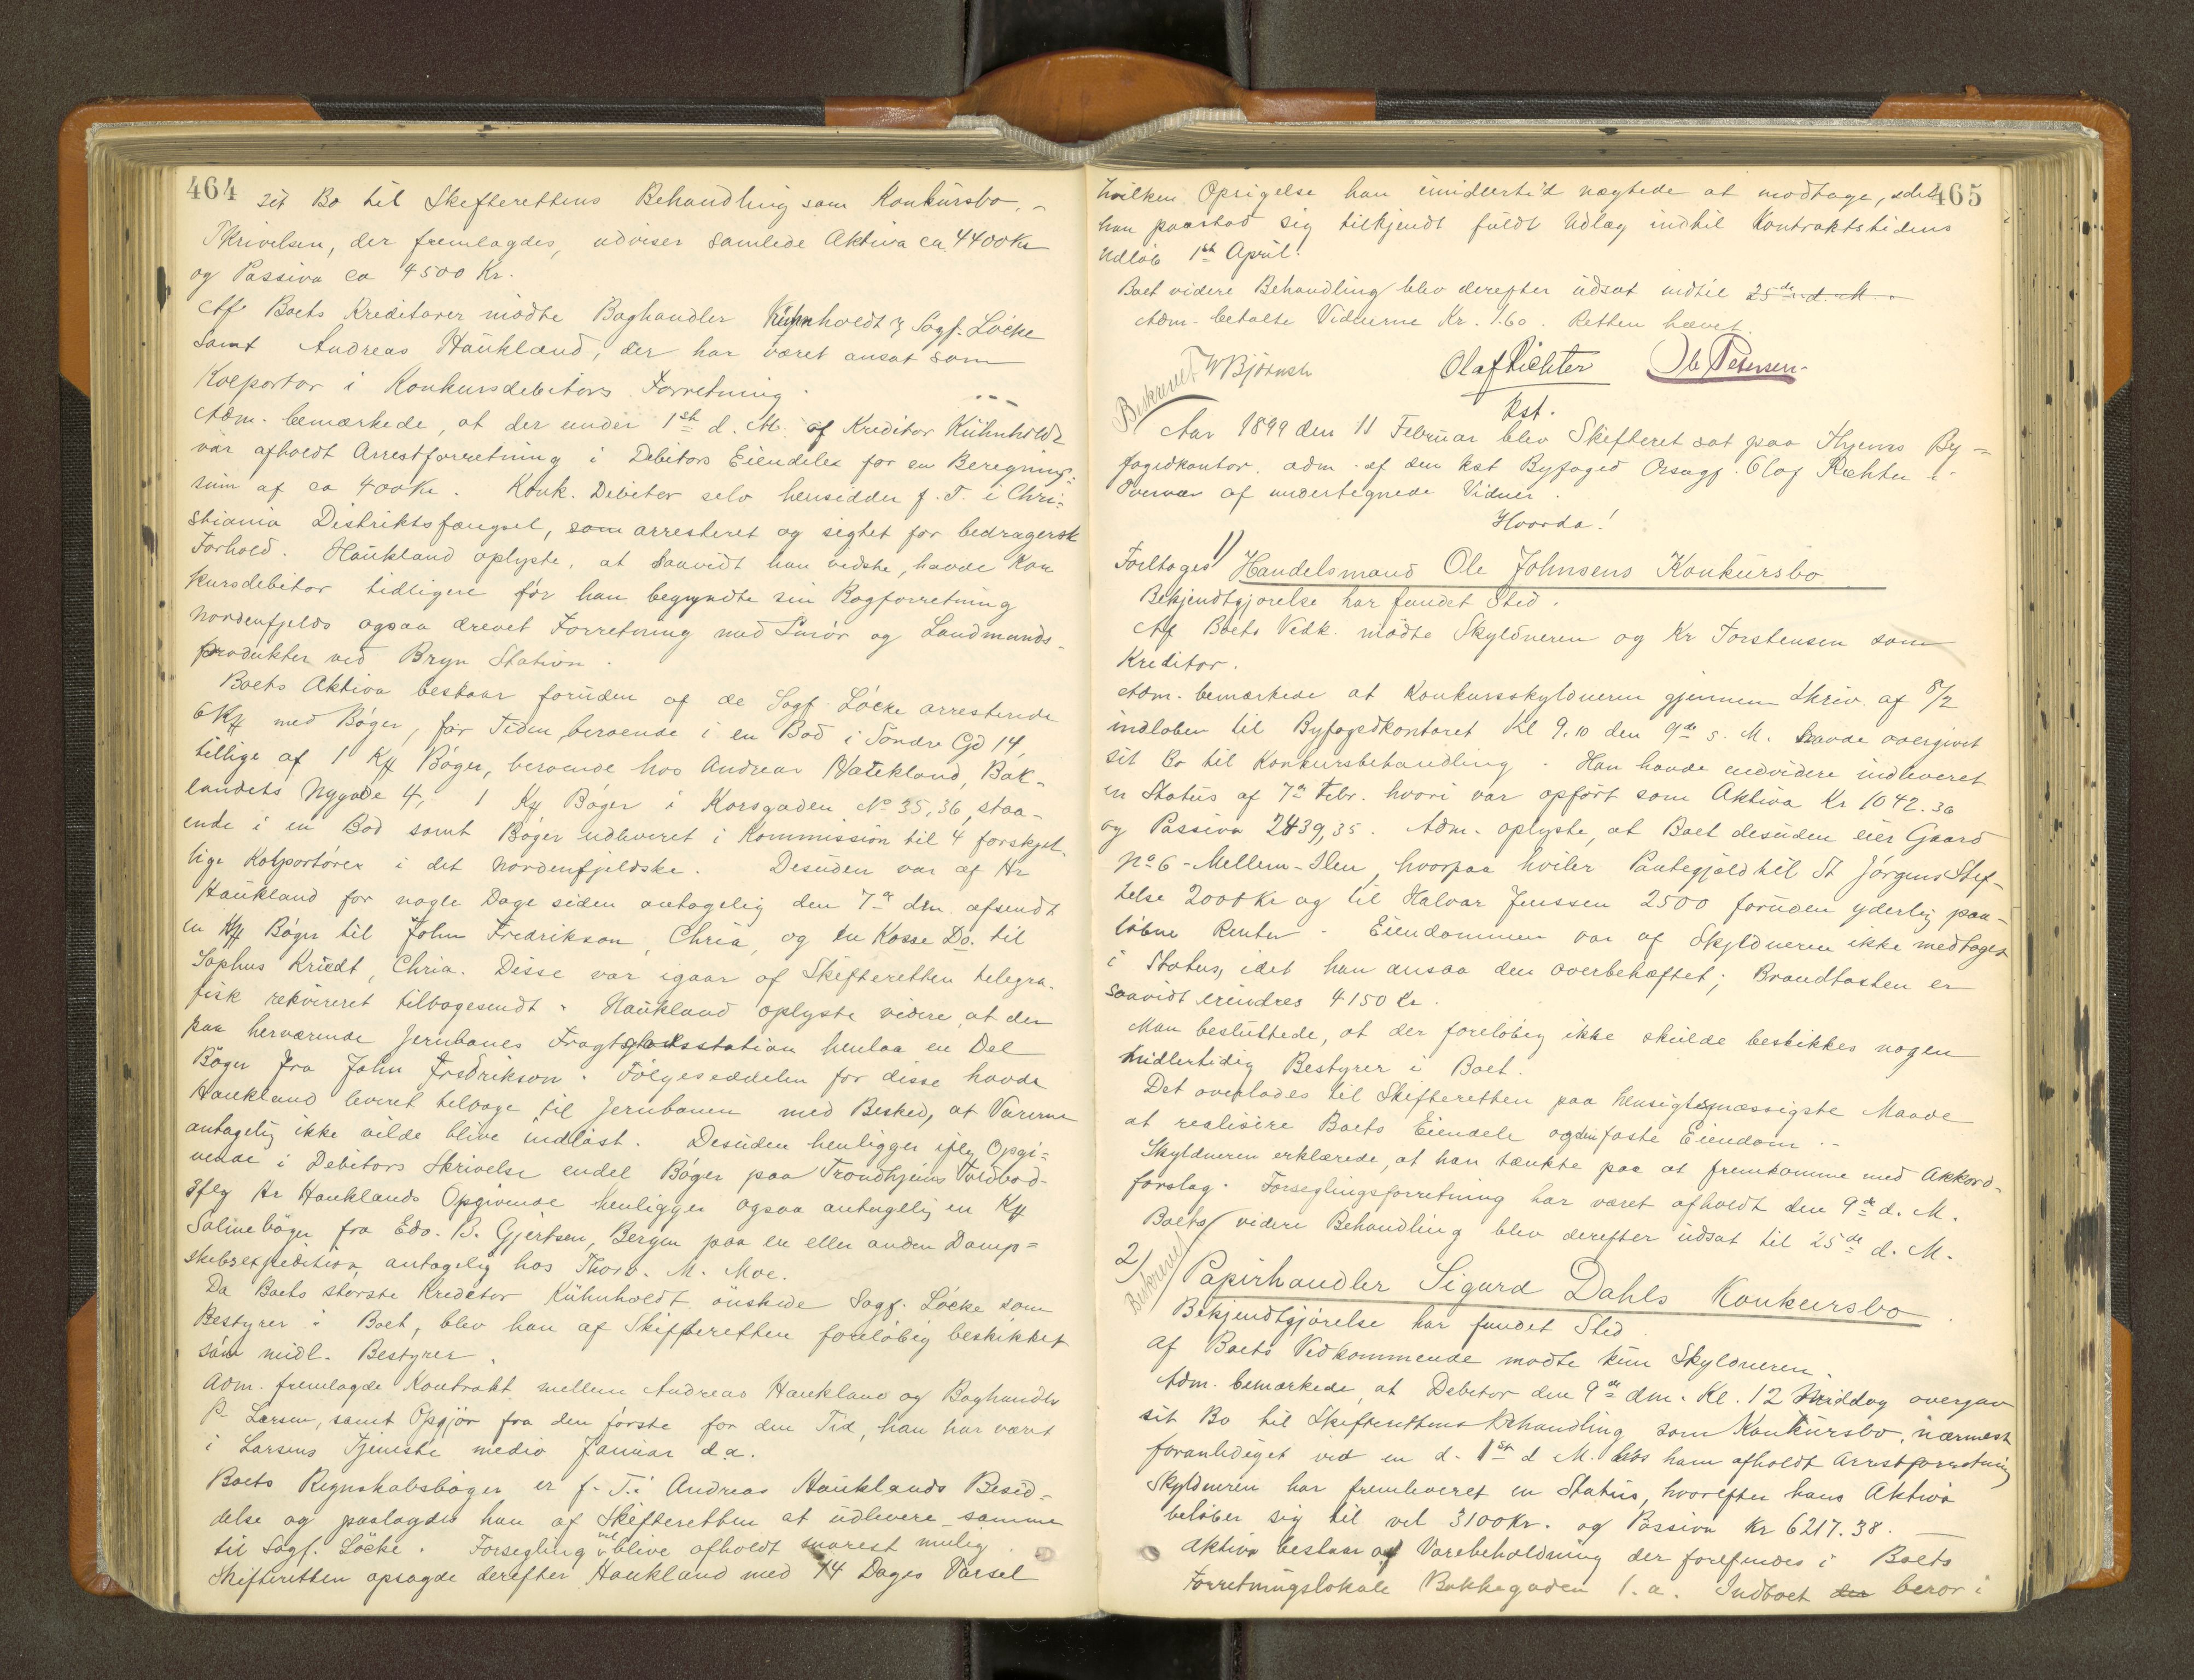 464
sit Bo til Skifterettens Behandling som Konkursbo. -
Skrivelsen, der fremlagdes, udviser samlede Aktiva ca. 4400 Kr
og Passiva ca 4500 Kr.
Af Boets Kreditorer mødte Boghandler Kühnholdt v Sagf. Löcke
samt Andreas Haukland, der har været ansat som
Kolportør i Konkursdebitors Forretning.
Adm. bemærkede, at der under 1st d. M. af Kreditor Kühnholdt
var afholdt Arrestforretning i Debitors Eiendeler for en Beregnings=
sum af ca 400 Kr. Konk. Debitor selv hensidder f. T. i Chri=
stiania Distriktsfængsel, som arresteret og sigtet for bedragersk
Forhold. Haukland oplyste, at saavidt han vidste, havde Kon
kursdebitor tidligere før han begyndte sin Bogforretning
nordenfjelds ogsaa drevet Forretning med Smør og Landmands-
produkter ved Bryn Station.
Boets Aktiva bestaar foruden af de Sagf. Löcke arresterede
6 Kff med Bøger, før Tiden, beroende i en Bod i Søndre Gd 14,
tillige af 1 Kff Bøger, beroende hos Andreas Haukland, Bak-
landets Nygade 4, 1 Kff Bøger i Korsgaden No 35, 36, staa-
ende i en Bod samt Bøger udleveret i Kommission til 4 forskjel-
lige Kolportører i det nordenfjeldske. Desuden var af Hr
Haukland for nogle Dage siden antagelig den 7de dm. afsendt
en Kff Bøger til John Fredrikson, Chria, og en Kasse Do. til
Sophus Kriedt, Chria. Disse var igaar af Skifteretten telegra-
fisk rekvireret tilbagesendt. Haukland oplyste videre, at der
paa herværende Jernbanes Fragtgodsstation henlaa en Del
Bøger fra John Fredrikson. Følgeseddelen for disse havde
Haukland leveret tilbage til Jernbanen med Besked, at Varerne
antagelig ikke vilde blive indløst. Desuden henligger iflg Opgi=
vende i Debitors Skrivelse endel Bøger paa Trondhjems Toldbod.
Iflg Hr Hauklands Opgivende henligger ogsaa antagelig en Kff
Salmebøger fra Edv. B. Gjertsen, Bergen paa en eller anden Damp=
skibsexpedition, antagelig hos Thorv. M. Moe.
Da Boets største Kreditor Kühnholdt ønskede Sagf. Löcke som
Bestyrer i Boet, blev han af Skifteretten foreløbig beskikket
som midl. Bestyrer.
Adm. fremlagde Kontrakt mellem Andreas Haukland og Boghandler
P. Larsen, samt Opgjør fra den første for den Tid, han har været
i Larsens Tjeneste medio Januar d.a.
Boets Regnskabsbøger er f. T. i Andreas Hauklands Besid=
delse og paalagdes han af Skifteretten at udlevere samme
til Sagf. Löcke. Forsegling vil blive afholdt snarest mulig.
Skifteretten opsagde derefter Haukland med 14 Dages Varsel
465
hvilken Opsigelse han imidlertid nægtede at modtage, idet
han paastod sig tilkjendt fuldt Udlæg indtil Kontraktstidens
Udløb 1ste April.
Boet videre Behandling blev derefter udsat indtil 25de d. M.
Adm. betalte Vidnerne Kr. 1.60. Retten hævet.
Beskrevet W Bjørnsk Olaf Richter Ole Petersen.
kst.
Aar 1899 den 11 Februar blev Skifteret sat paa Thjems By=
fogedkontor, adm. af den kst Byfoged Orsagf. Olaf Richter i
Overvær af undertegnede Vidner.
Hvorda!
Foretoges 1) Handelsmand Ole Johnsens Konkursbo
Bekjendtgjørelse har fundet Sted.
Af Boets Vedk. mødte Skyldneren og Kr Torstensen som
Kreditor.
Adm. bemærkede at Konkursskyldneren gjennem Skriv. af 8/2
indløben til Byfogedkontoret Kl 9.10 den 9de s. M. havde overgivet
sit Bo til Konkursbehandling. Han havde endvidere indleveret
en Status af 7de Febr. hvori var opført som Aktiva Kr 1042.36
og Passiva 2439,35. Adm. oplyste, at Boet desuden eier Gaard
No 6 - Mellem-Ilen, hvorpaa hviler Pantegjæld til St Jørgens Stif-
telse 2000 Kr og til Halvar Jenssen 2500 foruden yderlig paa-
løbne Renter. Eiendommen var af Skyldneren ikke medtaget
i Status, idet han ansaa den overbehæftet; Brandtaxten er
saavidt erindres 4150 Kr.
Man besluttede, at der foreløbig ikke skulde beskikkes nogen
midlertidig Bestyrer i Boet.
Det overlades til Skifteretten paa hensigtsmæssigste Maade
at realisere Boets Eiendele og den faste Eiendom. -
Skyldneren erklærede, at han tænkte paa at fremkomme med Akkord-
forslag. Forseglingsforretning har været afholdt den 9de d. M.
Boets videre Behandling blev derefter udsat til 25de d. M.
Beskrevet
2) Papirhandler Sigurd Dahls Konkursbo
Bekjendtgjørelse har fundet Sted
Af Boets Vedkommende mødte kun Skyldneren.
Adm. bemærkede, at Debitor den 9de dm. Kl. 12 Middag overgav
sit Bo til Skifterettens Behandling som Konkursbo, nærmest
foranlediget ved en d. 1st d M. hos ham afholdt Arrestforretning
Skyldneren har fremleveret en Status, hvorefter hans Aktiva
beløber sig til vel 3100 Kr. og Passiva Kr 6217.38.
Aktiva bestaar af Varebeholdning der forefindes i Boets
Forretningslokale Bakkegaden 1.a. Indboet der beror i